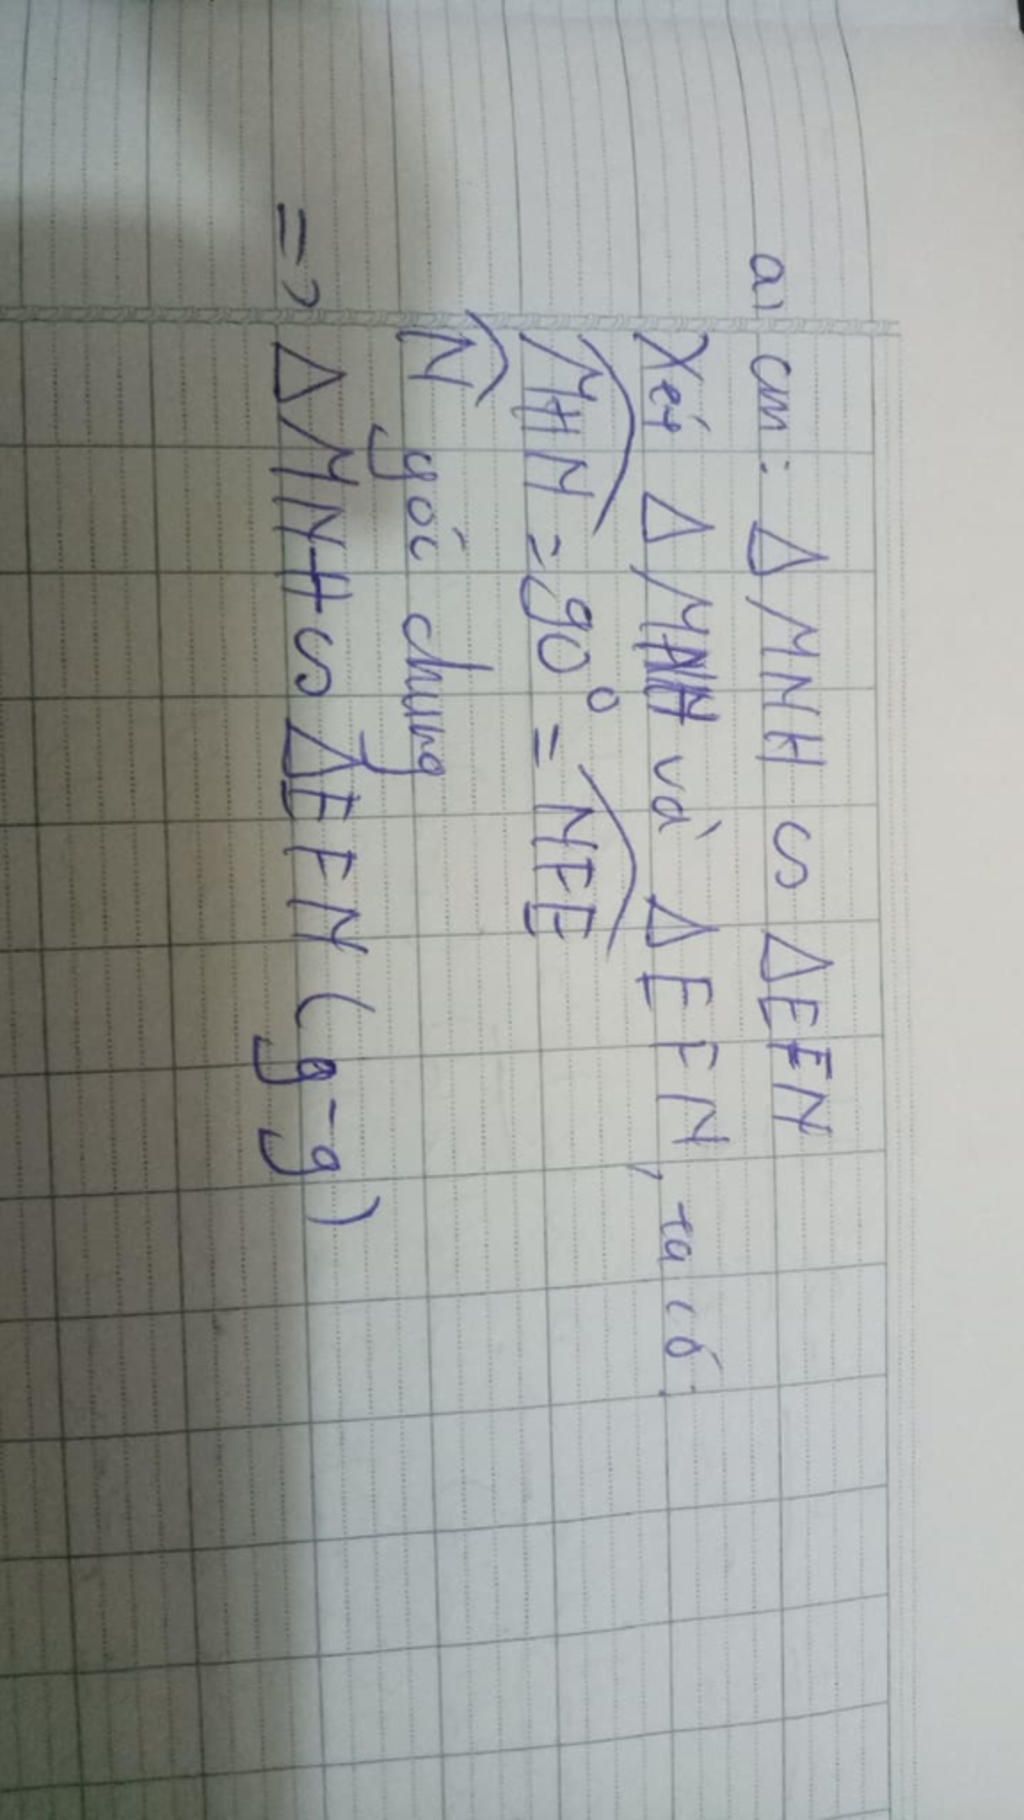 a) cm: Δ MNH ᔕ ΔEFN
Xét Δ MNH và Δ EFN, ta có:
MHN = 90° = NFE
N góc chung
=> Δ MNH ᔕ ΔEFN (g-g)